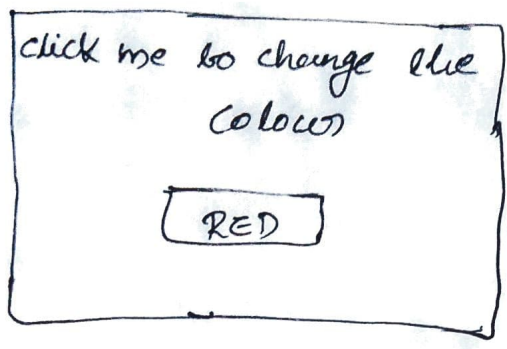 click me to change the
colour
RED